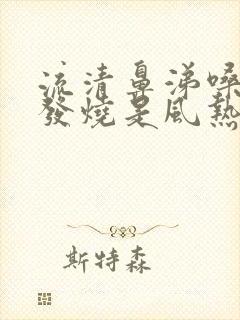 流清鼻涕嗓
發燒是風熱
斯特森